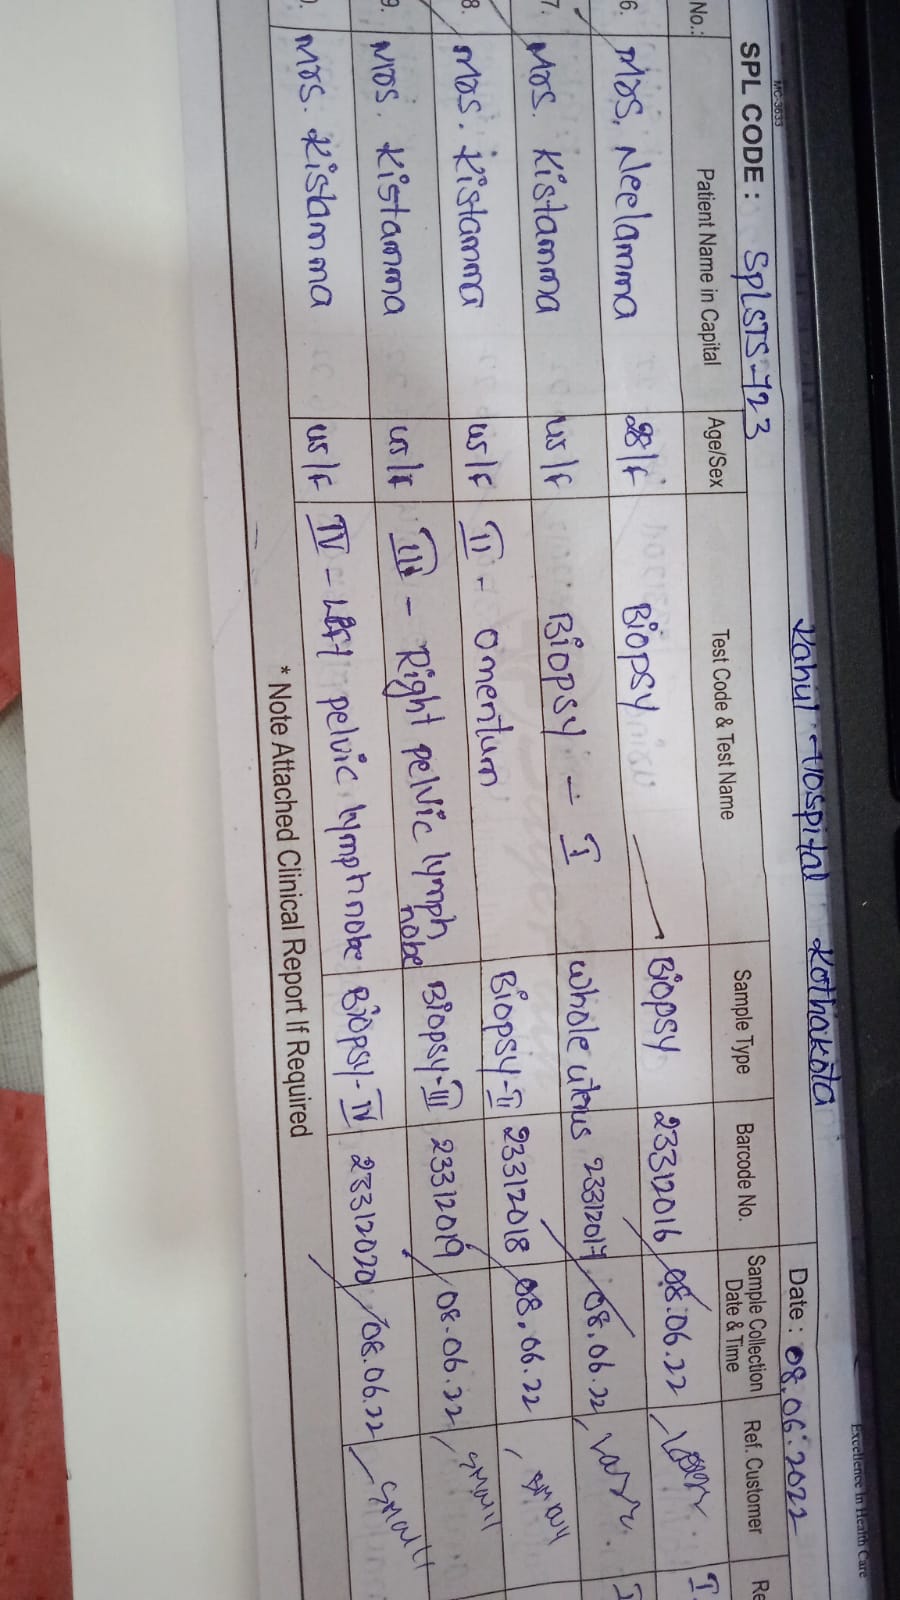 Excellence In Health Care
MC-3633
Rahul Hospital Kothakota
SPL CODE : SPLSTS-723 Date : 08.06.2022
No.: Patient Name in Capital Age/Sex Test Code & Test Name Sample Type Barcode No. Sample Collection Date & Time Ref. Customer Re
6. Mrs. Neelamma 28/F Biopsy Biopsy 23312016 08.06.22
7. Mrs. Kistamma 45/F Biopsy - I Whole uterus 23312017 08.06.22
8. Mrs. Kistamma 45/F II - Omentum Biopsy-II 23312018 08.06.22 small
9. Mrs. Kistamma 45/F III - Right pelvic lymph nobe Biopsy-III 23312019 08.06.22 small
Mrs. Kistamma 45/F IV - Left pelvic lymph nobe Biopsy-IV 23312020 08.06.22 small
* Note Attached Clinical Report If Required